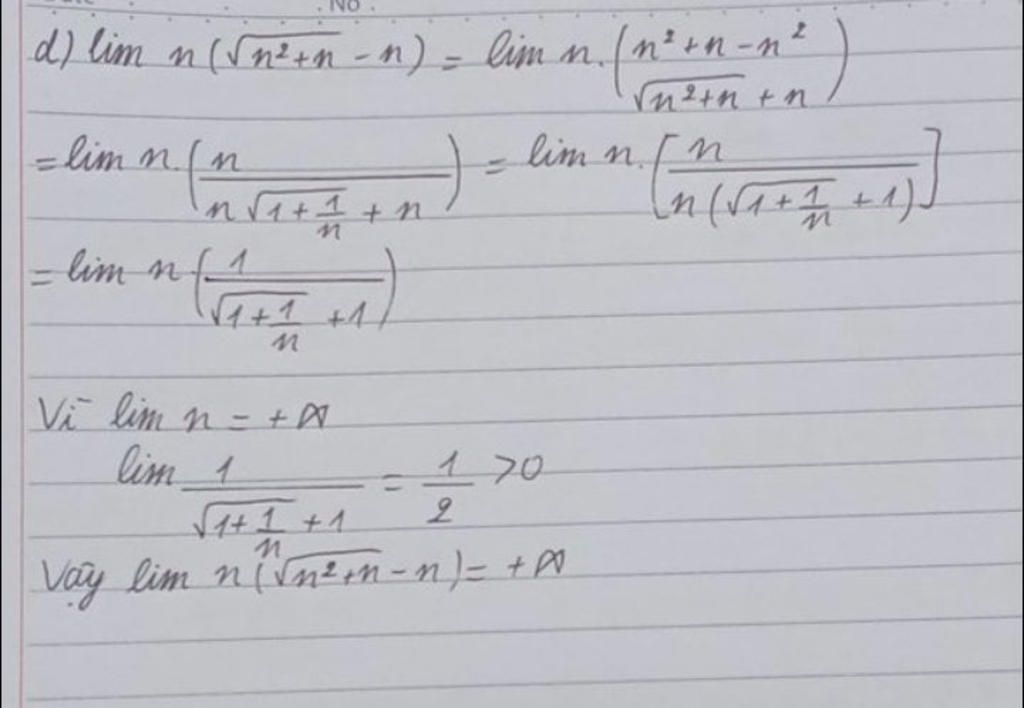 No
d) lim n(√(n²+n) - n) = lim n.((n²+n-n²)/(√(n²+n) + n))
= lim n.(n/(n√(1+1/n) + n)) = lim n.[n/(n(√(1+1/n) + 1))]
= lim n.(1/(√(1+1/n) + 1))
Vì lim n = +∞
lim 1/(√(1+1/n) + 1) = 1/2 >0
Vậy lim n(√(n²+n) - n) = +∞